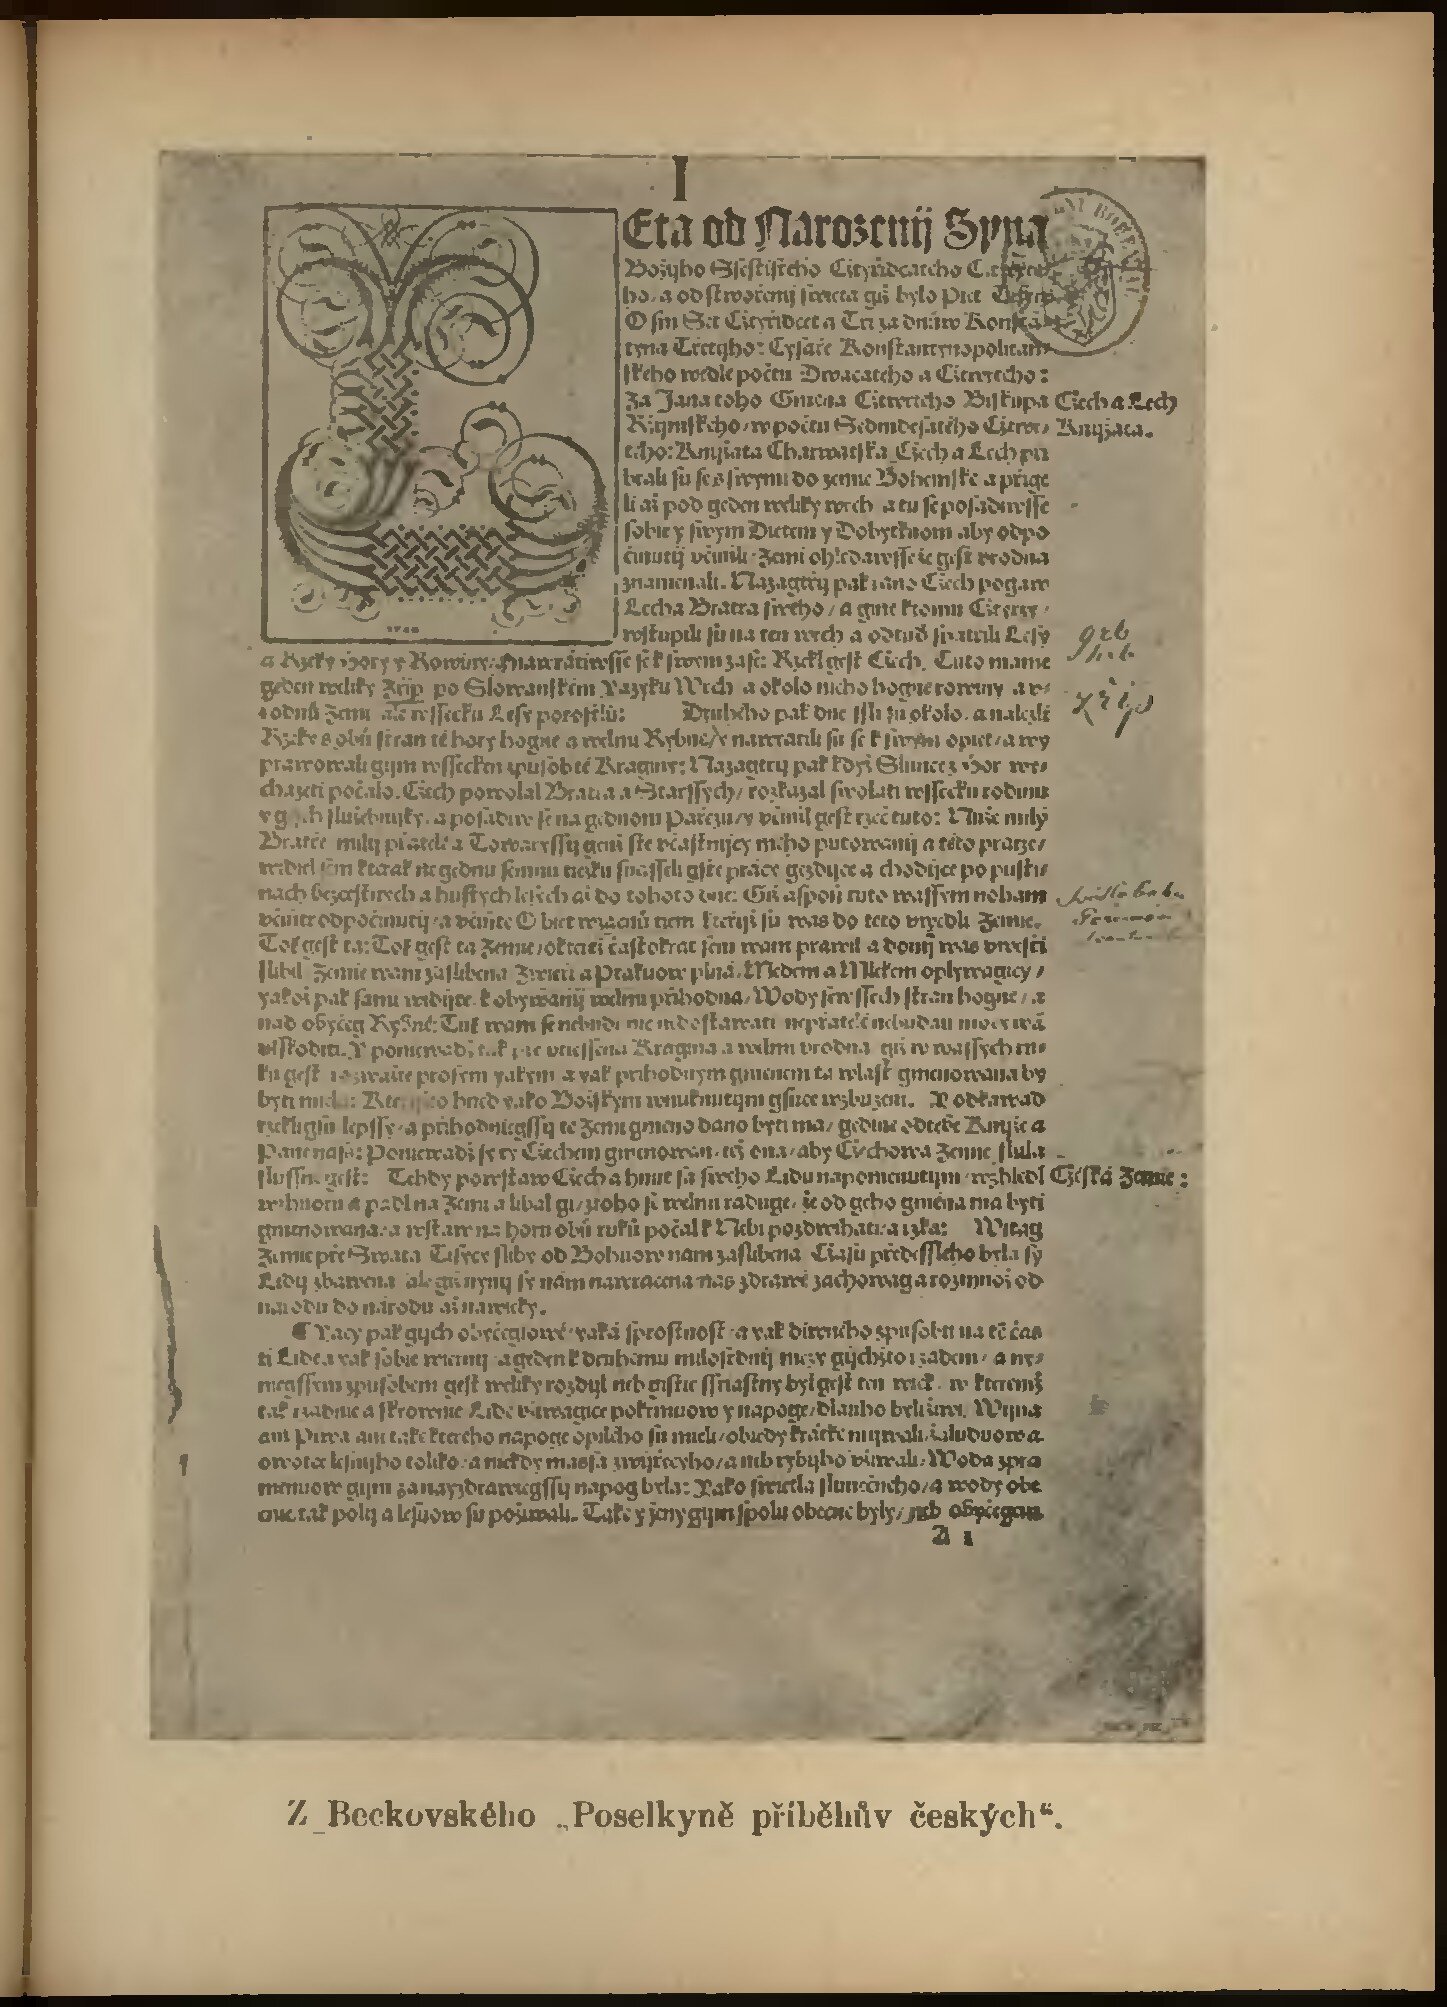 I
Eta od Narozenij Syna
Božijho Ssestistého Cztyřidcatého Cztwrte
ho, a od stworenij swieta giž bylo Piet Tisyc
O sm Set Cztyřidcet a Tri za dnuow Konsta
tyna Třetijho: Cysaře Konstantynopolitan
ského wedle počtu Dwacatého a Cztwrtého:
Za Jana toho Gmena Cztwrtého Biskupa
Rzijmského, w počtu Sedmdesátého Cžtwr
tého: Knijžata Charwatska Czech a Lech při
brali sú se s swymi do zemie Bohemské a přige
li až pod geden weliky wrch a tu se posadiwsse
sobie y swym Dietem y Dobytkuom aby odpo
činutij včinili. Zemi ohledawsse že gest vrodna
znamenali. Nazagtřij pak rano Czech pogaw
Lecha Bratra swého, a giné k tomu Cztyry,
wstupili sú na ten wrch a odtud spatrili Lesy
a Rzeky Hory y Rowiny, Nawrátiwsse se k swym zase: Rzekl gest Czech. Tuto mame
geden weliky Zřijp po Slowanském Yazyku Wrch a okolo nieho hogne rowiny a v
rodnú Zemi ale wssecku Lesy porostlú: Druhého pak dne ssli sú okolo, a nalezli
Rzeky s obú stran té hory hogne a welmi Rybne, y nawratili su se k swym opiet, a wy
prawowali gijm wsseckem zpusob té Kraginy: Nazagtrij pak když Slunce z Hor we
chazeti počalo. Czech powolal Bratra a Starssych, rozkazal swolati wssecku rodinu
y gich služebnijky, a posadiw se na gednom Pařezu, y včinil gest rzeč tuto: Nuže milij
Bratře milij přatelé a Towaryssij genž ste včastnijcy meho putowanij a této pratze,
wediel sem kterak ne gednu semnu tiezku snasseli gste práce gezdijce a chodijce po pusti
nach bezcestnech a hustych lesech až do tohoto dne: Giž aspoň tuto wassym noham
včinte odpočinutij, a včinte Obiet wzacnú tiem kteřijž sú was do teto vwedli Zemie.
Toť gest ta: Toť gest ta Zemie, o kteréž častokrat sem wam prawil a do nij was vwesti
slibil Zemie wam zaslibena Zwieri a Ptakuow plná, Medem a Mlekem oplywagicy,
yakož pak sami widijte k obywanij welmi přihodna, Wody se wssech stran hogne, a
nad obyčeg Rybné: Tuť wam se nebude nic nedostawati nepřatelé nebudau moci wá
vsskoditi. Y poniewadž tak gie vtiessena Kragina a welmi vrodna giž w wassych ru
ku gest rozwažte prosym yakym a yak přihodnym gmenem ta wlast gmenowana by
byti miela: Kterijžto hned yako Božskym wnuknutijm gsuce wzbuzeni. Y odkawad
rzekli giní lepssy, a přihodniegssij té Zemi gmeno dano byti ma, gedine od tebe Knijže a
Pane nass: Poniewadž sy ty Czechem gmenowan, též ona, aby Czechowa Zemie slula
slussne gest: Tehdy powstaw Czech a hnuw sa swého Lidu napomenutijm, wzhledl
wzhuoru a padl na Zemi a libal gi, z toho se welmi raduge, že od geho gména ma byti
gmenowana, a wstaw na horu obú rukú počal k Nebi pozdwihati, a rzka: Witag
Zemie pře Swata Tisyce sliby od Bohuow nam zaslibena Cžasu předesslého byla sy
Lidij zbawena ale giž nynij sy nám nawracena nas zdrawé zachowag a rozmnož od
narodu do národu až na wieky.
¶ Yacy pak gich obyčegiowé, yaká sprostnost, a yak diwného zpusobu na té čas
ti Lidé a yak sobie wierni, a geden k druhému milosrdnij mezy gichžto rzadem, a ny
niegssym zpusobem gest weliky rozdyl neb gistie sstiastny byl gest ten wiek, w kteremž
tak rzadnie a skrowne Lide vžiwagice pokrmuow y napoge, dlauho byli žiwi. Wijna
ani Piwa ani také kterého napoge opilého sú mieli, obiedy krátké mijwali, žaluduow a
owotce lesnijho toliko, a niekdy massa zwijřecyho, a neb rybijho vžiwali, Woda z pra
menuow gijm za nayzdrawiegssij napog byla: Yako swietla slunečného, a wody obe
cne tak polij a lesuow su požiwali. Také y ženy gijm spolu obecne byly, neb obyčegem
A 1
Cžech a Lech
Knijžata.
Cžéská Zemie:
Z Beckovského „Poselkyně příběhův českých“.